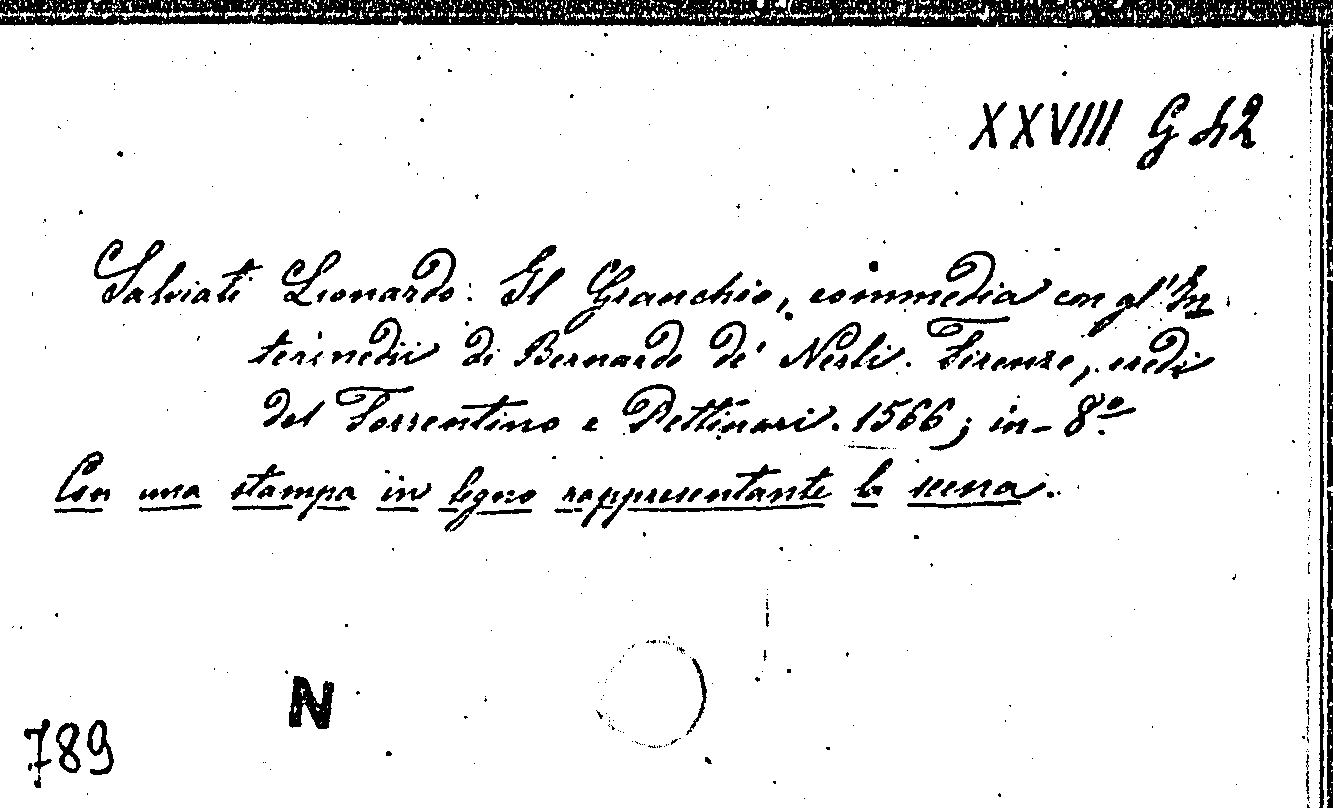 XXVIII G 42
Salviati Lionardo: Il Granchio, commedia con gl'In
termedii di Bernardo de' Nerli. Firenze, eredi
del Torrentino e Pettinari. 1566; in-8º
Con una stampa in legno rappresentante la scena.
N
789